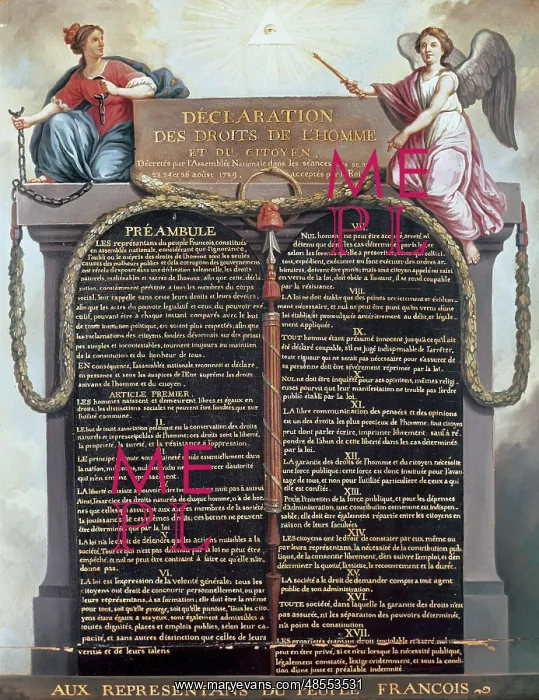 DÉCLARATION
DES DROITS DE L'HOMME
ET DU CITOYEN,
Décretés par l'Assemblée Nationale dans les séances
acceptés par
PRÉAMBULE
LES représentans du peuple François, constitués
en assemblée nationale, considérant que l'ignorance,
l'oubli ou le mépris des droits de l'homme sont les seules
causes des malheurs publics et de la corruption des gouvernemens
ont résolu d'exposer dans une déclaration solemnelle, les droits
naturels, inaliénables et sacrés de l'homme: afin que cette décla
ration, constamment présente à tous les membres du corps
social, leur rappelle sans cesse leurs droits et leurs devoirs;
afin que les actes du pouvoir législatif et ceux du pouvoir exé
cutif, pouvant être à chaque instant comparés avec le but
de toute institution politique, en soient plus respectés; afin que
les réclamations des citoyens, fondées désormais sur des princi
pes simples et incontestables, tournent toujours au maintien
de la constitution et du bonheur de tous.
EN conséquence, l'assemblée nationale reconnoit et déclare,
en présence et sous les auspices de l'Etre suprême les droits
suivans de l'homme et du citoyen.
ARTICLE PREMIER.
LES hommes naissent et demeurent libres et égaux en
droits; les distinctions sociales ne peuvent être fondées que sur
l'utilité commune.
II.
LE but de toute association politique est la conservation des droits
naturels et imprescriptibles de l'homme; ces droits sont la liberté,
la propriété, la sureté, et la résistance à l'oppression.
LE principe de toute souveraineté réside essentiellement dans
la nation,
LA liberté consiste à pouvoir faire tout ce qui ne nuit pas à autrui
Ainsi, l'exercice des droits naturels de chaque homme, n'a de bor
nes que celles qui assurent aux autres membres de la société
la jouissance de ces mêmes droits; ces bornes ne peuvent
être déterminées que par la loi.
V.
LA loi n'a le droit de défendre que les actions nuisibles à la
société. Tout ce qui n'est pas défendu par la loi ne peut être
empêché, et nul ne peut être contraint à faire ce qu'elle n'or-
donne pas.
VI.
LA loi est l'expression de la volonté générale; tous les
citoyens ont droit de concourir personnellement, ou par
leurs représentans, à sa formation; elle doit être la même
pour tous, soit qu'elle protege, soit qu'elle punisse. Tous les cito
yens étant égaux à ses yeux, sont également admissibles à
toutes dignités, places et emplois publics, selon leur ca
pacité, et sans autres distinction que celles de leurs
vertus et de leurs talens.
NUL homme ne peut être accusé, arrêté, ni
détenu que dans les cas déterminés par la loi,
selon les formes qu'elle a prescrites
tent, expédient, exécutent ou font exécuter des ordres ar-
bitraires, doivent être punis; mais tout citoyen appelé ou saisi
en vertu de la loi, doit obéir à l'instant, il se rend coupable
par la résistance.
VIII.
LA loi ne doit établir que des peines strictement et évidem-
ment nécessaire, et nul ne peut être puni qu'en vertu d'une
loi établie et promulguée antérieurement au délit, et légale-
ment appliquée.
IX.
TOUT homme étant présumé innocent jusqu'à ce qu'il ait
été déclaré coupable, s'il est jugé indispensable de l'arrêter,
toute rigueur qui ne serait pas nécessaire pour s'assurer de
sa personne doit être sévèrement réprimée par la loi.
X.
NUL ne doit être inquiété pour ses opinions, mêmes religi
euses pourvu que leur manifestation ne trouble pas l'ordre
public établi par la loi.
XI.
LA libre communication des pensées et des opinions
est un des droits les plus precieux de l'homme; tout citoyen
peut donc parler, écrire, imprimer librement: sauf à ré-
pondre de l'abus de cette liberté dans les cas déterminés
par la loi.
XII.
LA garantie des droits de l'homme et du citoyen nécessite
une force publique; cette force est donc instituée pour l'avan
tage de tous, et non pour l'utilité particuliere de ceux à qui
elle est confiée.
XIII.
Pour l'entretien de la force publique, et pour les dépenses
d'administration, une contribution commune est indispen-
sable; elle doit être également répartie entre les citoyens en
raison de leurs facultées.
XIV.
LES citoyens ont le droit de constater par eux même ou
par leurs représentans, la nécessité de la contribution pub
lique, de la consentir librement, d'en suivre l'emploi, et d'en
déterminer la quotité, l'assiette, le recouvrement et la durée.
XV.
LA société a le droit de demander compte à tout agent
public de son administration.
XVI.
TOUTE société, dans laquelle la garantie des droits n'est
pas assurée, ni la séparation des pouvoirs déterminée,
n'a point de constitution.
XVII.
LES propriétés étant un droit inviolable et sacré, nul ne
peut en être privé, si ce n'est lorsque la nécessité publique,
légalement constatée, l'exige évidemment, et sous la condi-
tion d'une juste et préalable indemnité.
AUX REPRESENTANS DU PEUPLE FRANCOIS
ME
PL
ME
PL
www.maryevans.com/48553531